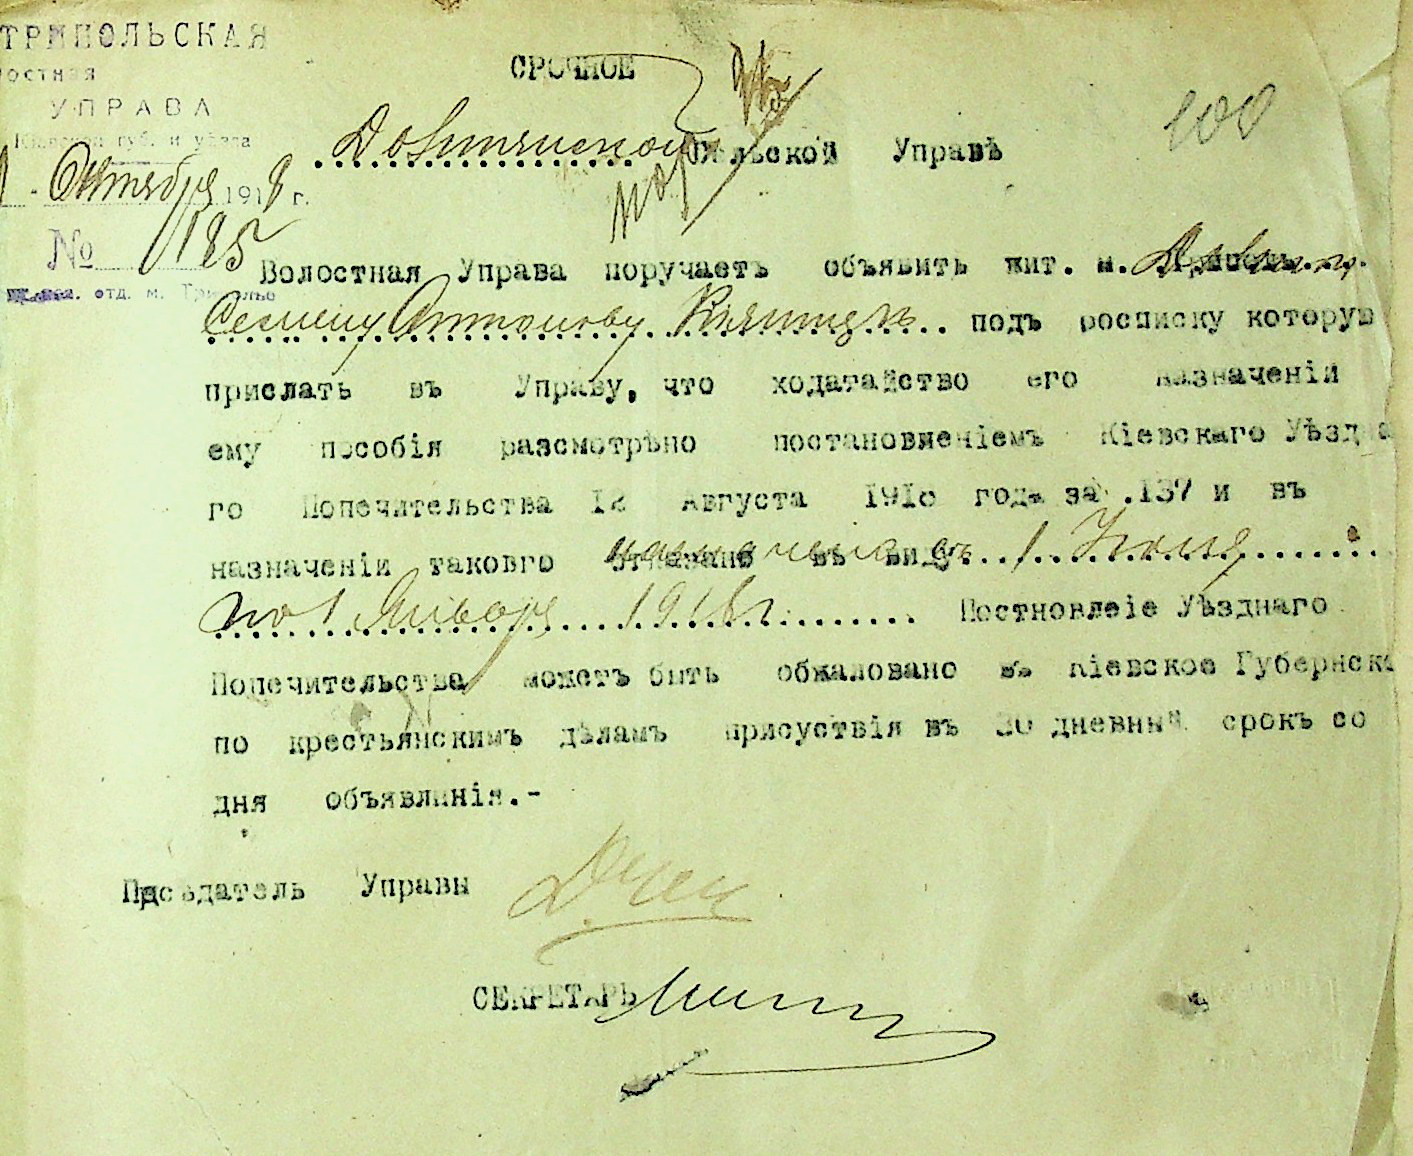 ТРИПОЛЬСКАЯ
Волостная
УПРАВА
Кіевской губ. и уѣзда
Октября 1918 г.
№ 1185
отд. м. Триполье
СРОЧНОЕ
100
Сельской Управѣ
Волостная Управа поручаетъ объявить жит. м.
Семену Антонову подъ росписку которую
прислать въ Управу, что ходатайство его назначеніи
ему пособія разсмотрѣно постановленіемъ Кіевскаго Уѣздна
го Попечительства 12 Августа 1918 года за .137 и въ
назначеніи таковго отказано въ виду назначено съ 1 Іюня
по 1 Января 1918 г. Постновлеіе Уѣзднаго
Попечительства можетъ быть обжаловано въ Кіевское Губернско
по крестьянскимъ дѣламъ присуствія въ 30 дневный срокъ со
дня объявлинія.-
Прдсѣдатель Управы
СЕКРЕТАРЬ